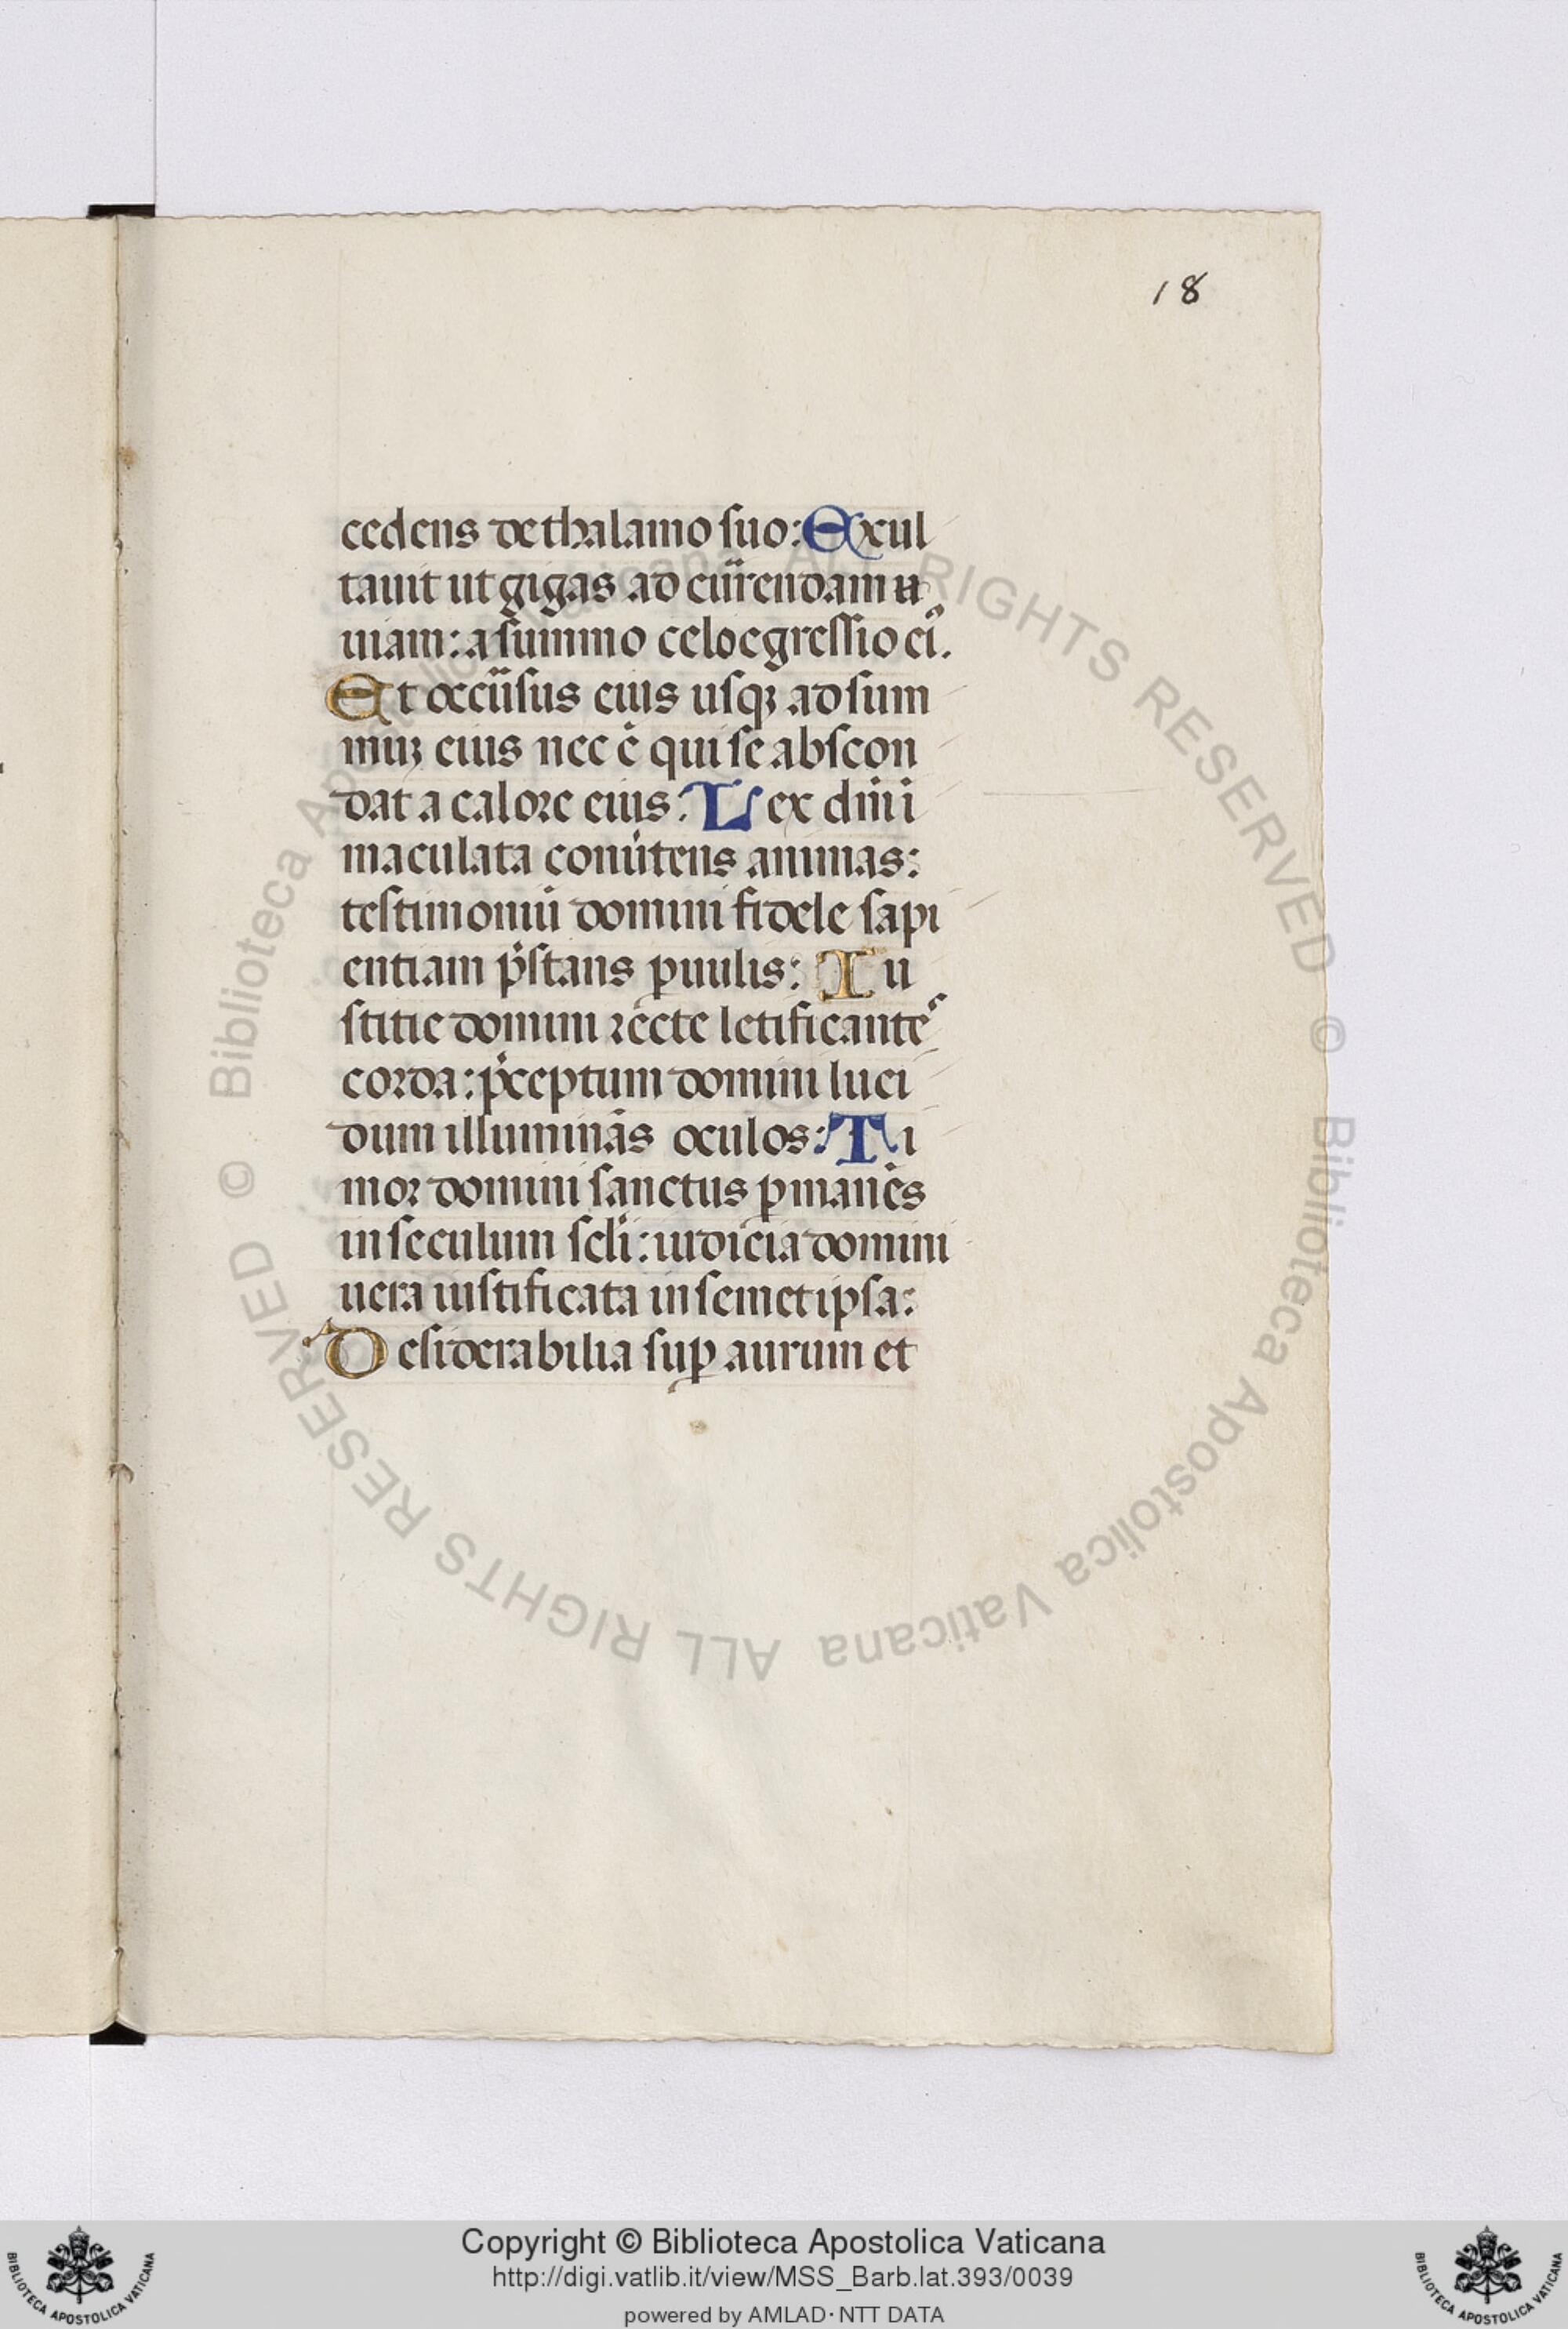 18
cedens de thalamo suo: Exul
tauit ut gigas ad cur̄rendam u
uiam: a summo celo egressio ei᷒.
Et occūsus eius usqꝫ ad sum
muꝫ eius nec ē qui se abscon
dat a calore eius: Lex dn̄i i
maculata conūtens animas:
testimoniū domini fidele sapi
entiam p̄stans ꝑuulis: Iu
stitie domini recte letificantes
corda: p̄ceptum domini luci
dum illuminās oculos: Ti
mor domini sanctus ꝑmanēs
in seculum scl̄i: iudicia domini
uera iustificata in semetipsa:
Desiderabilia suꝑ aurum et
© Biblioteca Apostolica Vaticana ALL RIGHTS RESERVED © Biblioteca Apostolica Vaticana ALL RIGHTS RESERVED
Copyright © Biblioteca Apostolica Vaticana
http://digi.vatlib.it/view/MSS_Barb.lat.393/0039
powered by AMLAD·NTT DATA
BIBLIOTECA APOSTOLICA VATICANA
BIBLIOTECA APOSTOLICA VATICANA